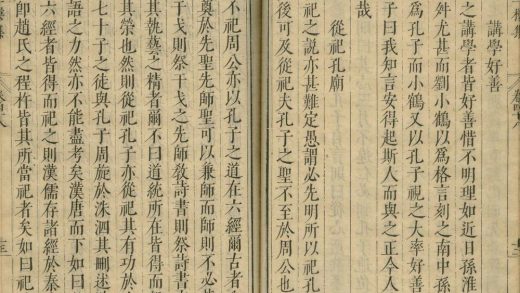 講學好善
之講學者皆好善惜不明理如近日孫淮
舛尤甚而劉小鶴以爲格言刻之南中孫
爲孔子而小鶴又以孔子視之大率好善
子曰我知言安得起斯人而與之正今人
哉
從祀孔廟
祀之說亦甚難定愚謂必先明所以祀孔
後可及從祀夫孔子之聖不至於周公也
不祀周公亦以孔子之道在六經爾古者
奠於先聖先師聖可以兼師而師則不必其
于戈則祭干戈之先師敎詩書則祭詩書
其執藝之精者爾不曰道統所在皆得而
其榮也然則從祀孔子亦從祀其有功於
七十子之徒與孔子周旋於洙泗其刪述
語之力然亦不能盡考矣漢唐而下如曰
六經者皆得而祀之則漢儒存諸經於秦
卽趙氏之程杵皆其所當祀者矣如曰祀